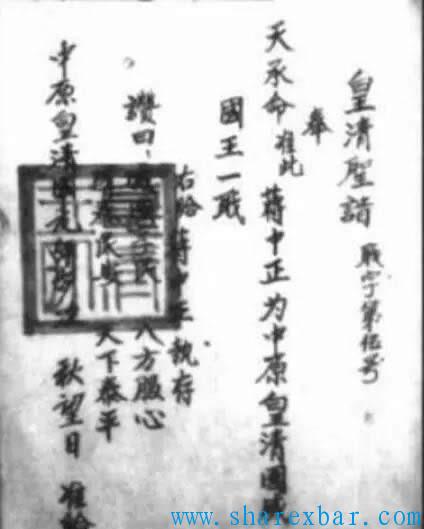 皇清聖諳 戝字第伍号
奉
天承命 准此 蔣中正为中原皇清国
國王一戝
右给蔣中正执存
讚曰： 民 八方服心
春民安 天下泰平
中原皇清 元 秋望日 准
www.sharexbar.com